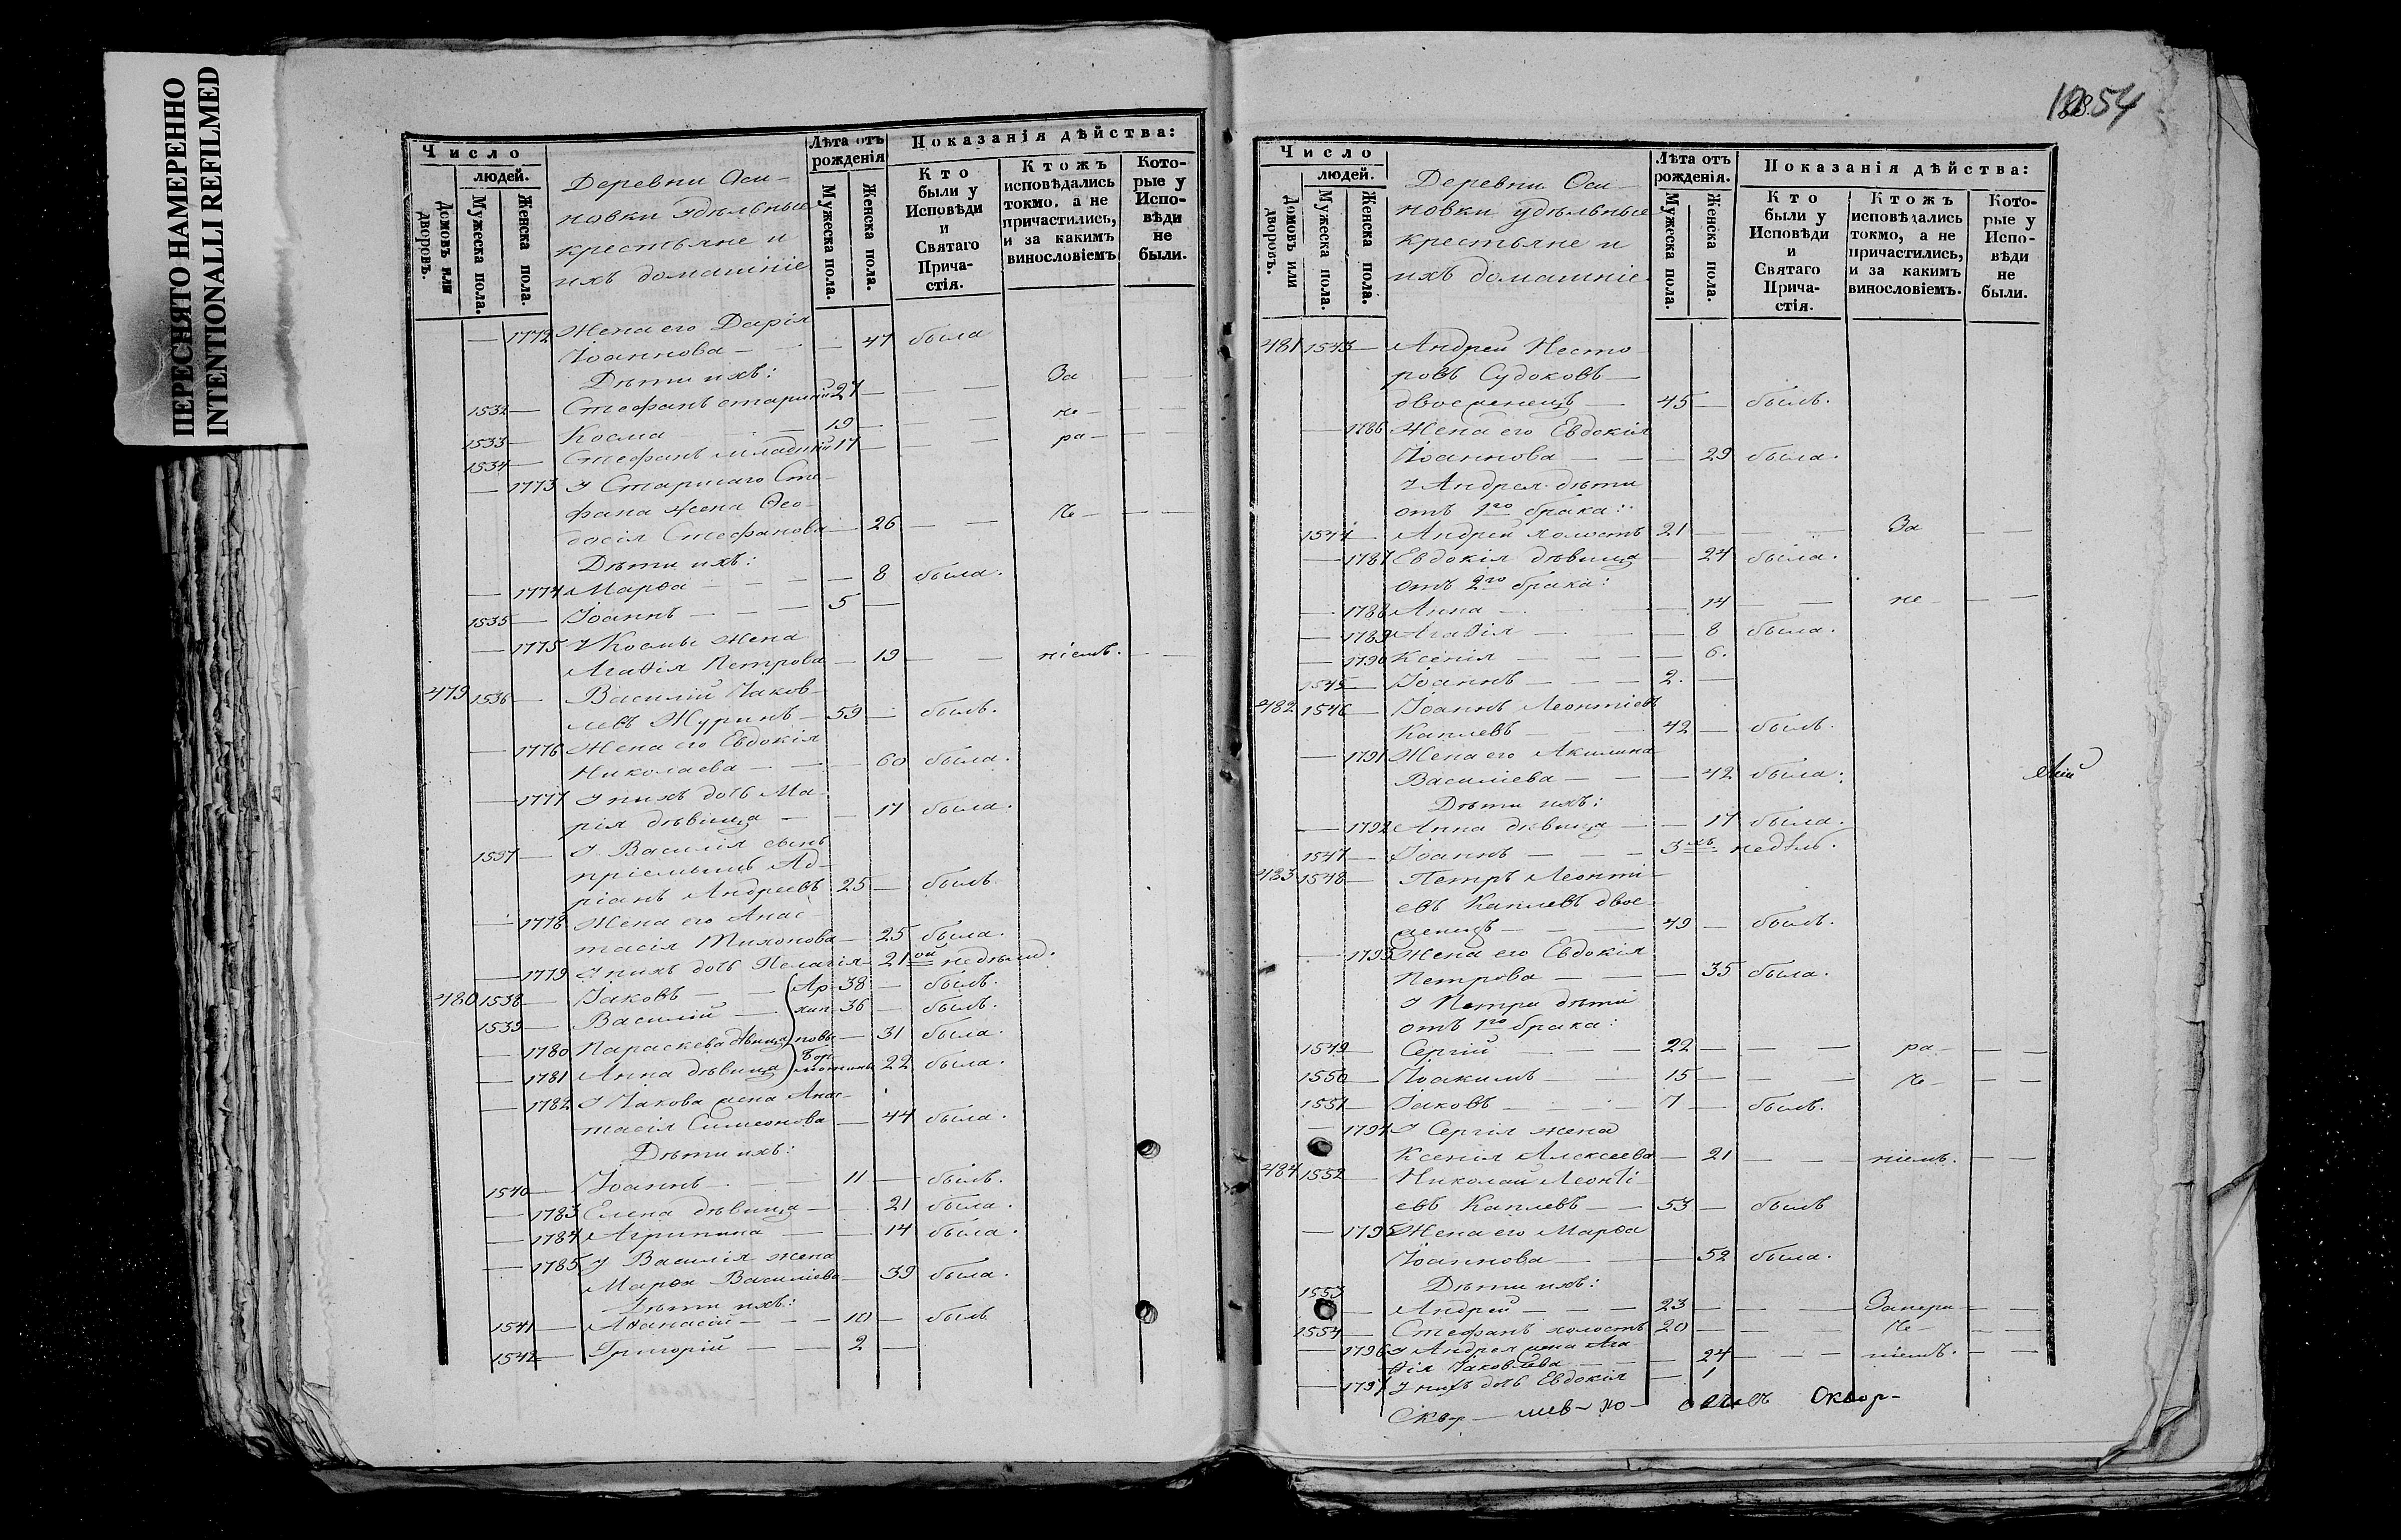 ПЕРЕСНЯТО НАМЕРЕННО
INTENTIONALLI REFILMED
Число
людей.
Домовъ или дворовъ.
Мужеска пола.
Женска пола.
Деревни Оси-
новки удѣльные
крестьяне и
ихъ домашніе
Лѣта отъ рожденія
Мужеска пола.
Женска пола.
Показанія дѣйства:
Кто были у Исповѣди и Святаго Прича-стія.
Ктожъ исповѣдались токмо, а не причастились, и за какимъ винословіемъ
Кото-рые у Испо-вѣди не были.
— 1772 Жена его Дарія
Іоаннова — — 47 была
Дѣти ихъ:
1532 — Стефанъ старшій 27 — — — За — —
1533 — Косма — 19 — — — не — — —
1534 — Стефанъ младшій 17 — — ра — — —
— 1773 У Старшаго Сте-
фана жена Ѳео-
досія Стефанова — 26 — — че — — —
Дѣти ихъ:
— 1774 Марѳа — — — — 8 была.
1535 — Іоаннъ — — — 5 —
— 1775 У Космы жена
Агаѳія Петрова — 19 — — ніемъ. — —
479 1536 — Василій Іаков-
левъ Журинъ — 59 — былъ.
— 1776 Жена его Евдокія
Николаева — — — 60 была.
— 1777 У нихъ дочь Ма-
рія дѣвица — — 17 была.
1537 — У Василія сынъ
пріемышъ Ад-
ріанъ Андреевъ 25 — былъ.
— 1778 Жена его Анас-
тасія Тихонова — 25 была.
— 1779 У нихъ дочь Пелагія 21 ой недѣли.
480 1538 — Іаковъ — — Ар- 38 — былъ.
1539 — Василій — хип- 36 — былъ.
— 1780 Параскева дѣвица повы — 31 была.
— 1781 Анна дѣвица 22 была.
— 1782 У Іакова жена Анас-
тасія Симеонова — 44 была.
Дѣти ихъ:
1540 — Іоаннъ — — 11 — былъ.
— 1783 Елена дѣвица — — 21 была.
— 1784 Агрипина — — 14 была.
— 1785 У Василія жена
Марѳа Василіева — 39 была.
Дѣти ихъ:
1541 — Аѳанасій — — — 10 — былъ
1542 — Григорій — — 2 —
54
Число
людей.
Домовъ или дворовъ.
Мужеска пола.
Женска пола.
Деревни Оси-
новки удѣльные
крестьяне и
ихъ домашніе
Лѣта отъ рожденія.
Мужеска пола.
Женска пола.
Показанія дѣйства:
Кто были у Исповѣди и Святаго Прича-стія.
Ктожъ исповѣдались токмо, а не причастились, и за какимъ винословіемъ.
Кото-рые у Испо-вѣди не были.
481 1543 — Андрей Несто-
ровъ Судоковъ —
двоеженецъ — 45 — былъ.
— 1786 Жена его Евдокія
Іоаннова — — — 29 была.
У Андрея дѣти
отъ 1го брака:
1544 — Андрей холостъ 21 — — — За — —
— 1787 Евдокія дѣвица — 24 была.
отъ 2го брака:
— 1788 Анна — — — 14 — — не — — —
— 1789 Агаѳія — — — 8 была.
— 1790 Ксенія — — — — 6.
1545 — Іоаннъ — — — 2. —
482 1546 — Іоаннъ Леонтіевъ
Каплевъ — 42 — былъ.
— 1791 Жена его Акилина
Василіева — — — 42 была.
Дѣти ихъ:
— 1792 Анна дѣвица — — 17 была.
1547 — Іоаннъ — — — 3хъ недѣль.
483 1548 — Петръ Леонті-
евъ Каплевъ двое-
женецъ — — — 49 — былъ.
— 1793 Жена его Евдокія
Петрова — — — 35 была.
У Петра дѣти
отъ 1го брака:
1549 — Сергій — — 22 — — — ра — — —
1550 — Іоакимъ — — 15 — — — че — — —
1551 — Іаковъ — — 7 — былъ.
— 1794 У Сергія жена
Ксенія Алексеева — 21 — — ніемъ. — —
484 1552 — Николай Леонті-
евъ Каплевъ — — 53 — былъ
— 1795 Жена его Марѳа
Іоаннова — — 52 была.
Дѣти ихъ:
1553 — Андрей — — — 23 — — — Запера — — —
1554 — Стефанъ холостъ 20 — — — че — — —
— 1796 У Андрея жена Ага-
ѳія Іаковлева — — — 24 — — — ніемъ. — —
— 1797 У нихъ дочь Евдокія — 1
Сквор-